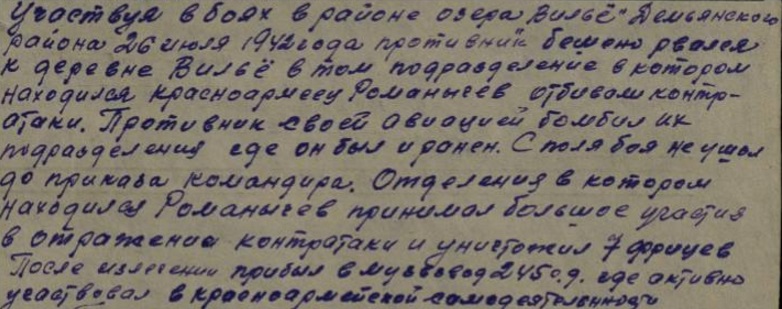 Участвуя в боях в районе озера Вильё" Демьянского
района 26 июля 1942 года противник бешено рвался
к деревне Вильё в том подразделение в котором
находился красноармеец Романычев отбивали контр-
атаки. Противник своей авиацией бомбил их
подразделения где он был и ранен. С поля боя не ушол
до приказа командира. Отделения в котором
находился Романычев принимал большое участия
в отражении контратаки и уничтожил 7 фрицев
После излечении прибыл в музвзвод 245 с.д. где активно
участвовал в красноармейской самодеятельности